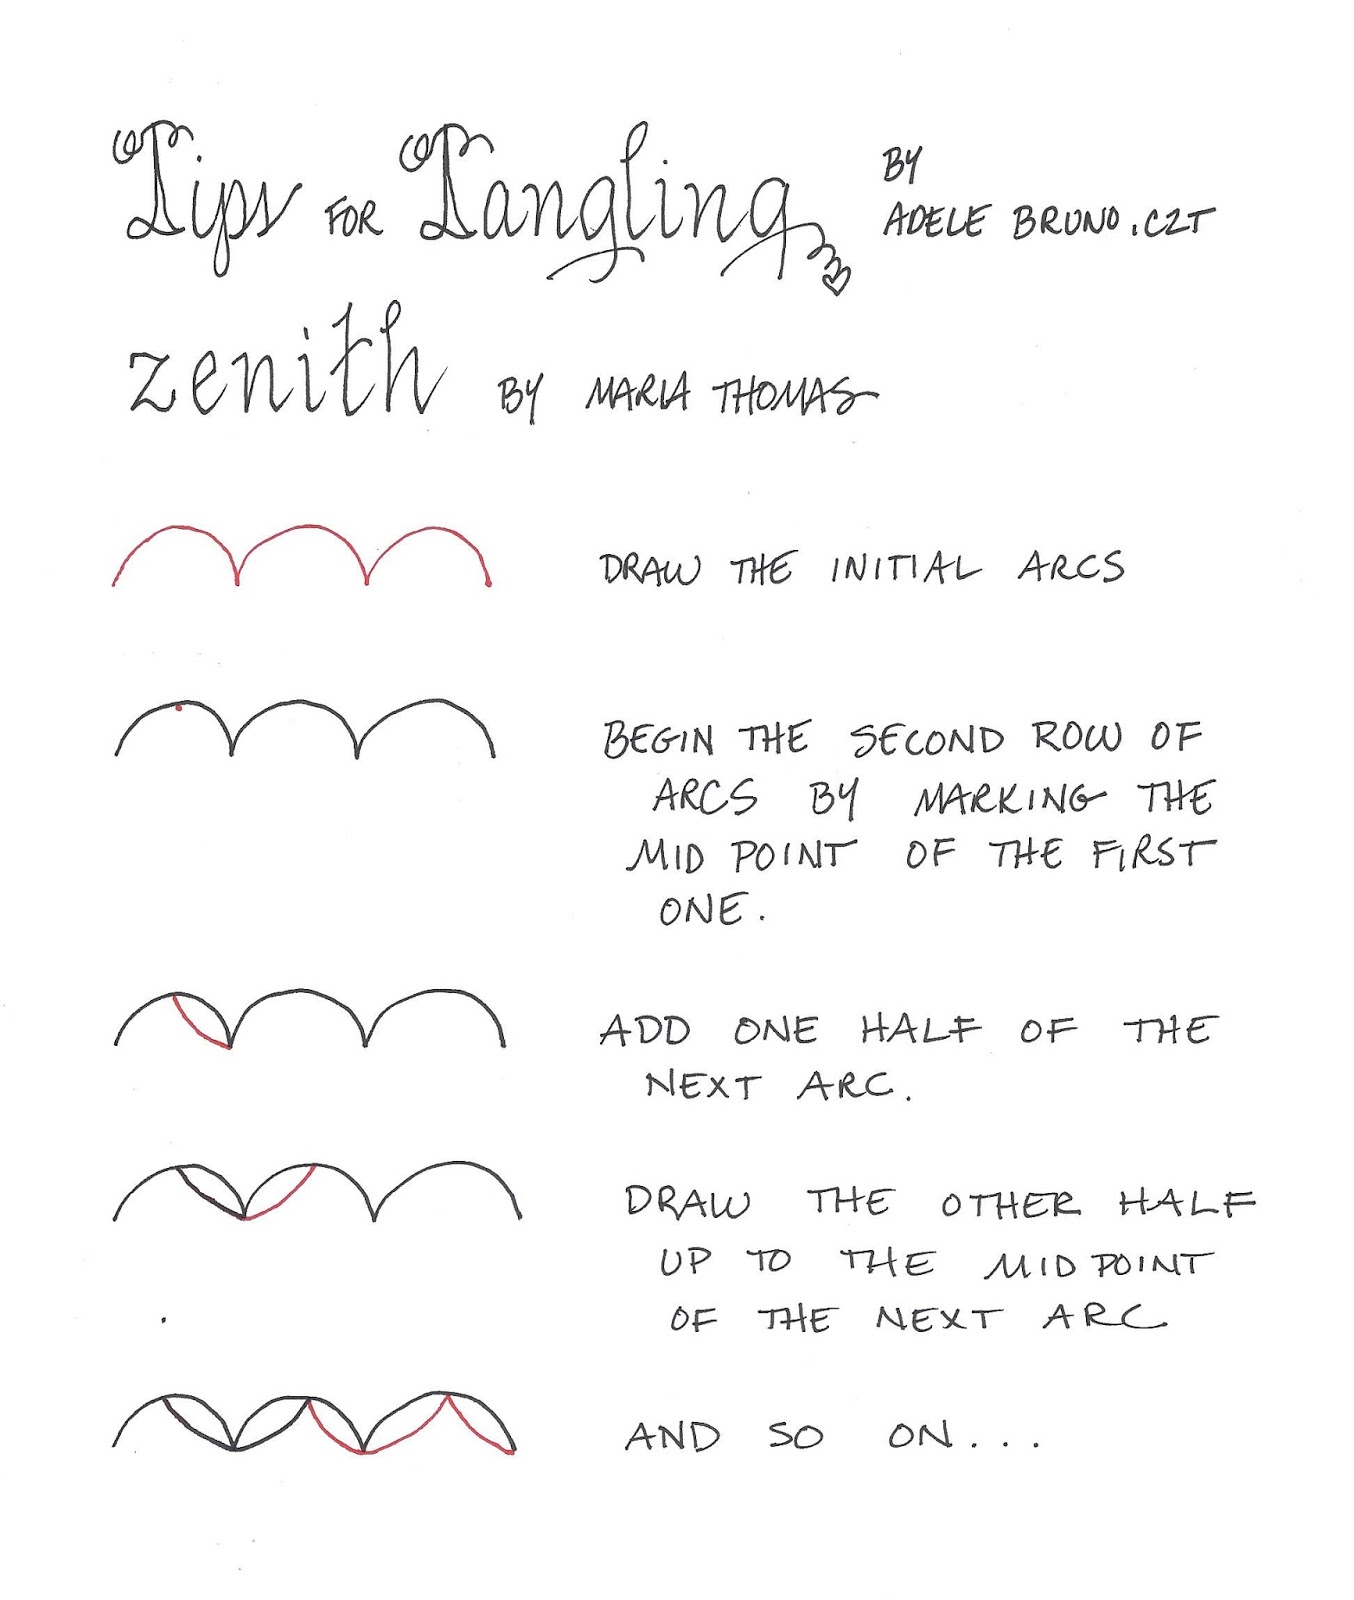 Tips FOR Tangling BY
ADELE BRUNO, CZT
zenith BY MARIA THOMAS
DRAW THE INITIAL ARCS
BEGIN THE SECOND ROW OF
ARCS BY MARKING THE
MID POINT OF THE FIRST
ONE.
ADD ONE HALF OF THE
NEXT ARC.
DRAW THE OTHER HALF
UP TO THE MIDPOINT
OF THE NEXT ARC
AND SO ON...